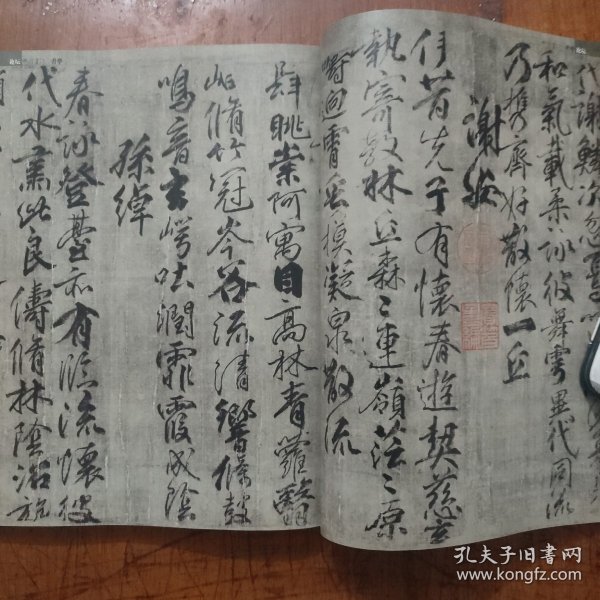 代謝鱗次忽焉以
和氣載柔詠彼舞雩異代同流
乃携齊好散懷一丘
謝安
伊昔先子有懷春遊契茲言
執寄敖林丘森〻連嶺茫〻原
疇迥霄垂霧凝泉散流
肆眺崇阿寓目高林青蘿翳
岫脩竹冠岑谷流清響條鼓
鳴音玄崿吐潤霏霞成陰
孫綽
春詠登臺亦有臨流懷彼
伐木肅此良儔脩林陰沼旋
论坛
论坛
孔夫子旧书网
www.kongfz.com